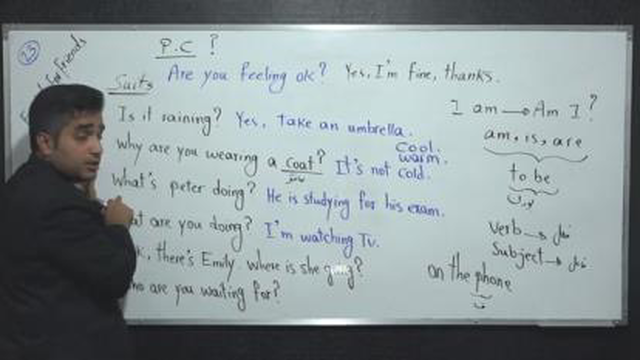 23
P.C ?
for friends
Suits
Are you feeling ok? Yes, I'm fine, thanks.
Is it raining? Yes, take an umbrella.
Why are you wearing a coat? It's not cold.
cool.
warm.
What's peter doing? He is studying for his exam.
at are you doing? I'm watching Tv.
k, there's Emily. where is she going?
ho are you waiting for?
I am → Am I ?
am, is, are
to be
Verb → فعل
Subject → فاعل
on the phone